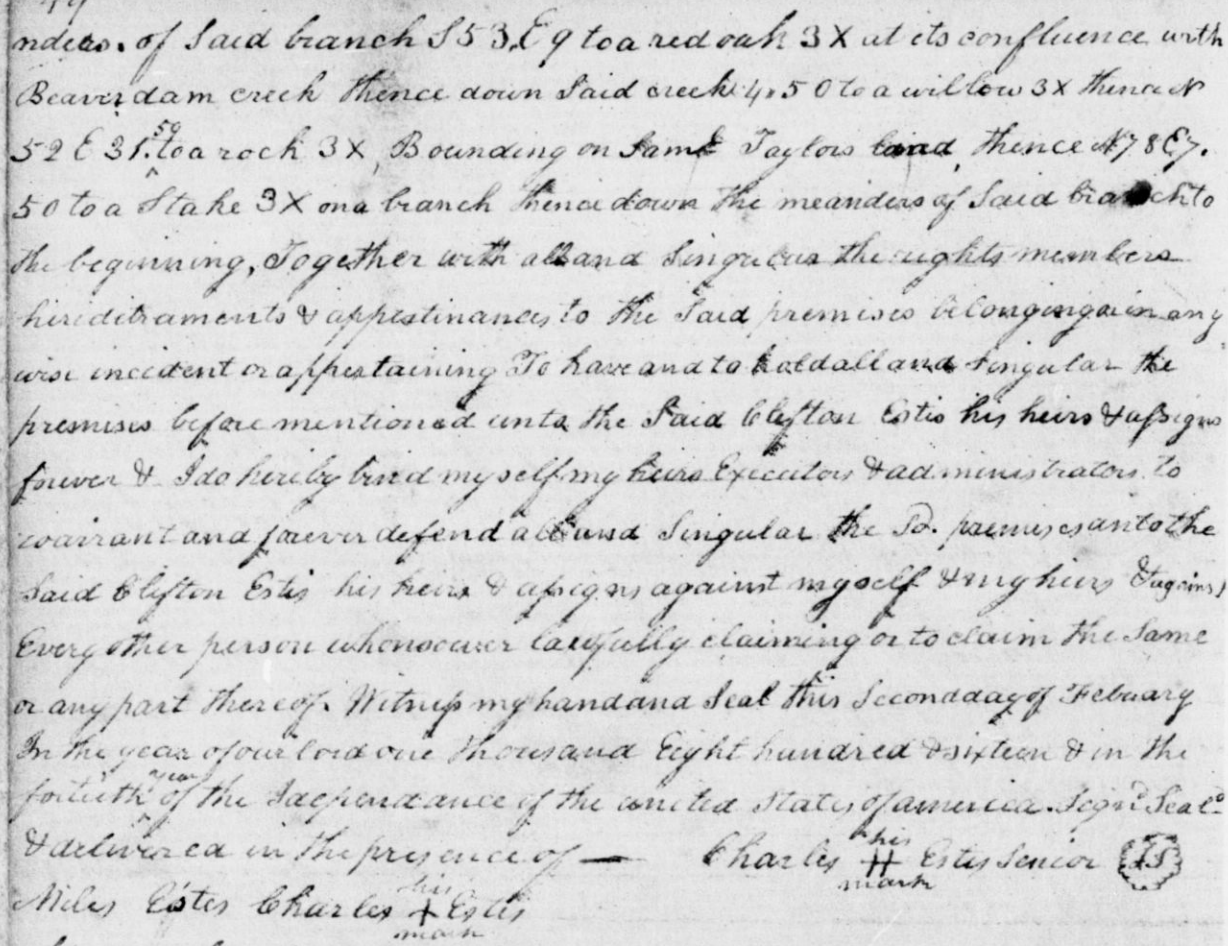 nders. of Said branch S 53 E 9 to a red oak 3 X at its confluence with
Beaverdam creek thence down Said creek 4.50 to a willow 3X thence N
52 E 31.50 to a rock 3X, Bounding on Saml Taylors land, thence N78 E7.
50 to a Stake 3X on a branch thence down the meanders of Said branch to
the beginning, Together with all and Singular the rights members
hereditraments & appertinances to the Said premises belonging or in any
wise incident or appertaining To have and to hold all and Singular the
premises before mentioned unto the Said Clifton Estis his heirs & assigns
forever & I do hereby bind myself my heirs Executors & administrators to
warrant and forever defend all and Singular the Sd. premises unto the
Said Clifton Estis his heirs & assigns against myself & my heirs & against
Every other person whomsoever lawfully claiming or to claim the Same
or any part thereof. Witness my hand and Seal this Second day of Febuary
In the year of our lord one thousand Eight hundred & sixteen & in the
fortieth year of the Independance of the united States of america. Sign'd Seal'd
& delivered in the presence of — Charles his H mark Estes Senior LS
Miles Estes Charles his + mark Estis